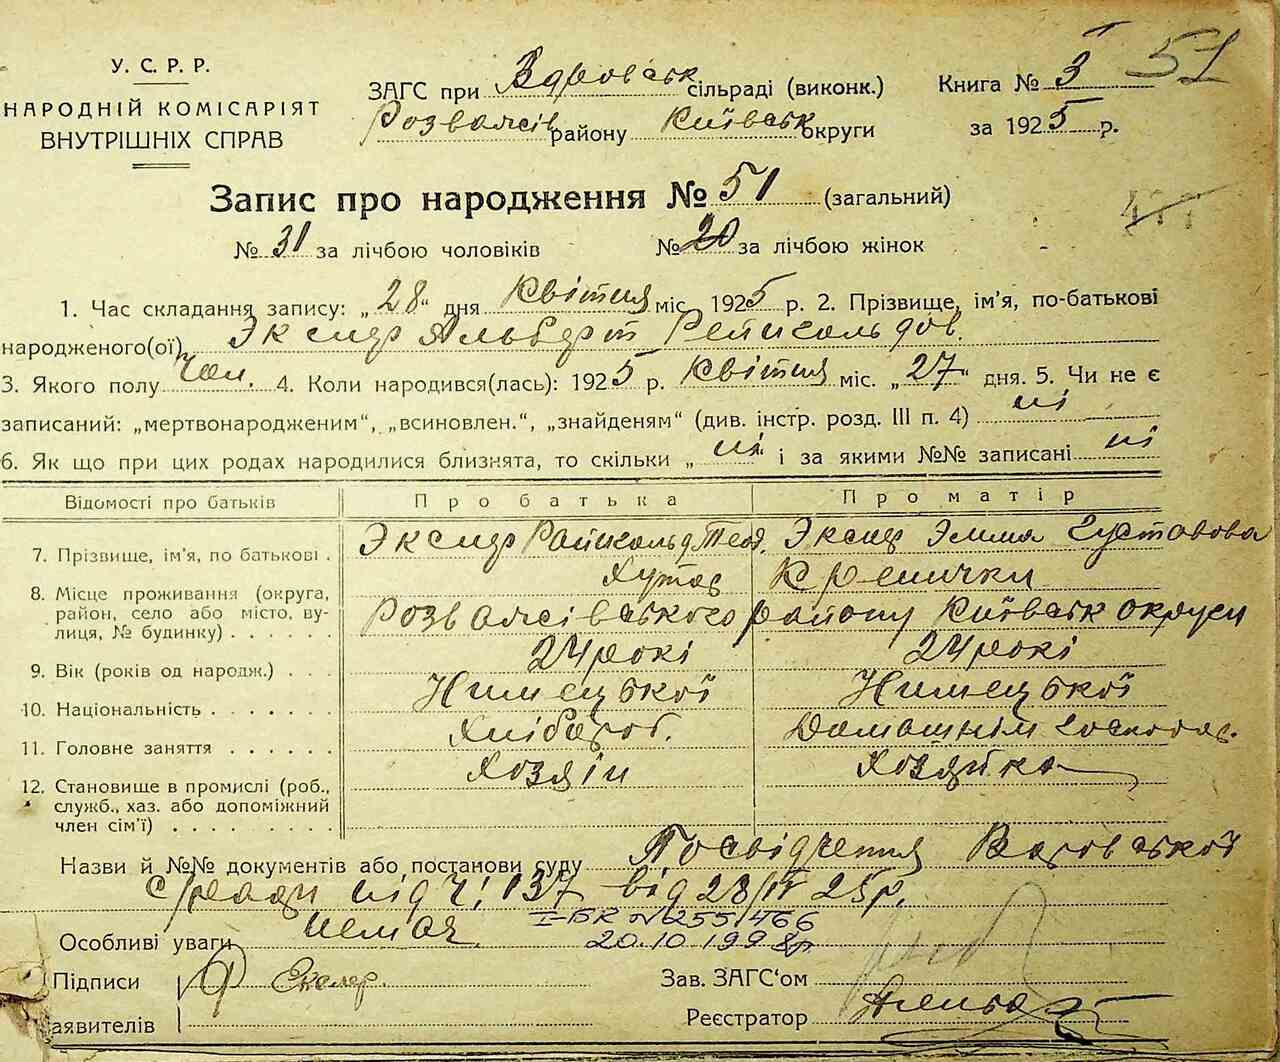 У. С. Р. Р.
НАРОДНІЙ КОМІСАРІЯТ
ВНУТРІШНІХ СПРАВ
ЗАГС при Вдровськ сільраді (виконк.)
Розважів району Київськ округи
Книга № 3
51
за 1925 р.
Запис про народження № 51 (загальний)
№ 31 за лічбою чоловіків № 20 за лічбою жінок
1. Час складання запису: „28“ дня Квітня міс. 1925 р. 2. Прізвище, ім’я, по-батькові
народженого(ої) Экслер Альберт Рейнольдов.
3. Якого полу Чол. 4. Коли народився(лась): 1925 р. Квітня міс. „27“ дня. 5. Чи не є
записаний: „мертвонародженим“, „всиновлен.“, „знайденям“ (див. інстр. розд. III п. 4) ні
6. Як що при цих родах народилися близнята, то скільки „ні“ і за якими №№ записані ні
Відомості про батьків Про батька Про матір
7. Прізвище, ім’я, по батькові . Экслер Райнольд Теод. Экслер Эмма Густавовa
8. Місце проживання (округа, район, село або місто, вулиця, № будинку) . . . . . . Хутор Кренички
Розважівського району Київськ округи
9. Вік (років од народж.) . . . 24 рокі 24 рокі
10. Національність . . . . . . . Нимецької Нимецької
11. Головне заняття . . . . . . Хлібороб. Домашнім господар.
12. Становище в промислі (роб., служб., хаз. або допоміжний член сім’ї) . . . . . . . . Хозяїн Хозяйка
Назви й №№ документів або постанови суду Посвідчення Вдровської
с/ради під ч: 137 від 28/IV 25р.
I-БК № 255466
Особливі уваги немає 20.10.1998р
Підписи Екслер. Зав. ЗАГС‘ом
аявителів Реєстратор